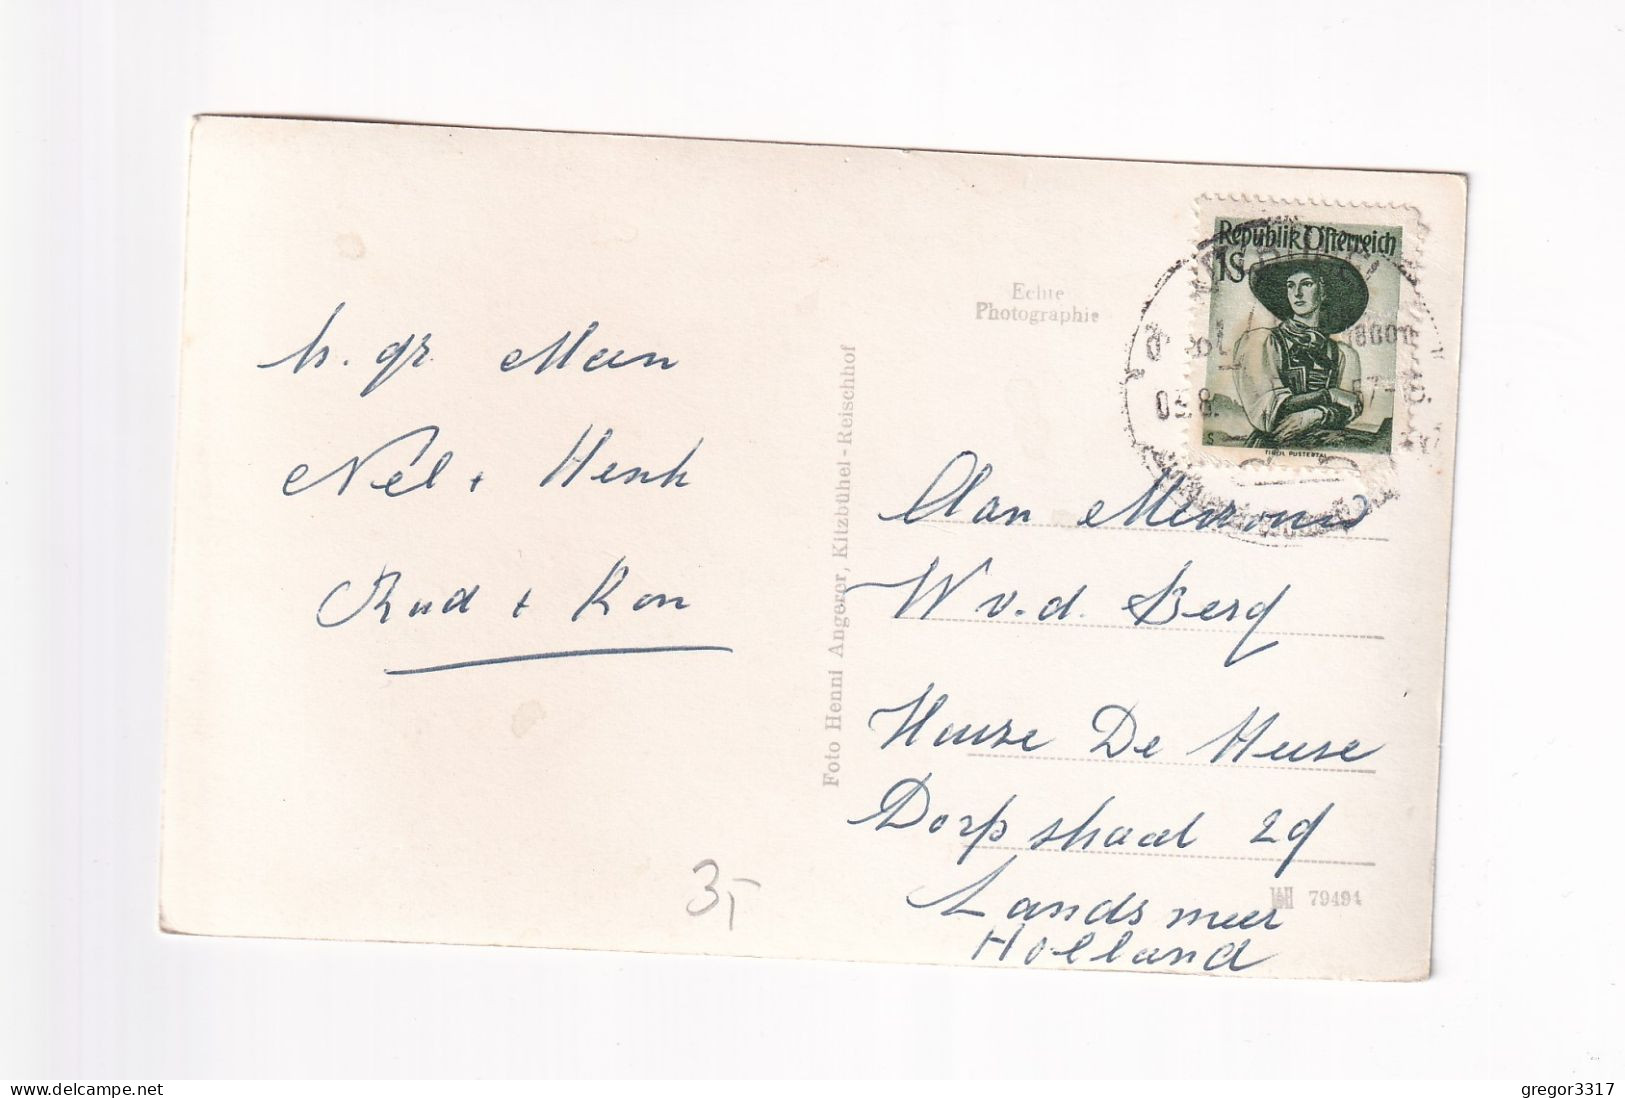 h. gr. Meen
Nel + Henk
Rud + Ron
Foto Henni Angerer, Kitzbühel-Reischhof
Echte
Photographie
Republik Österreich
1S
TIROL PUSTERTAL
Aan Mevrouw
W v.d. Berg
House De Heuse
Dorpstraat 29
Landsmeer
Holland
79494
3,-
www.delcampe.net
gregor3317